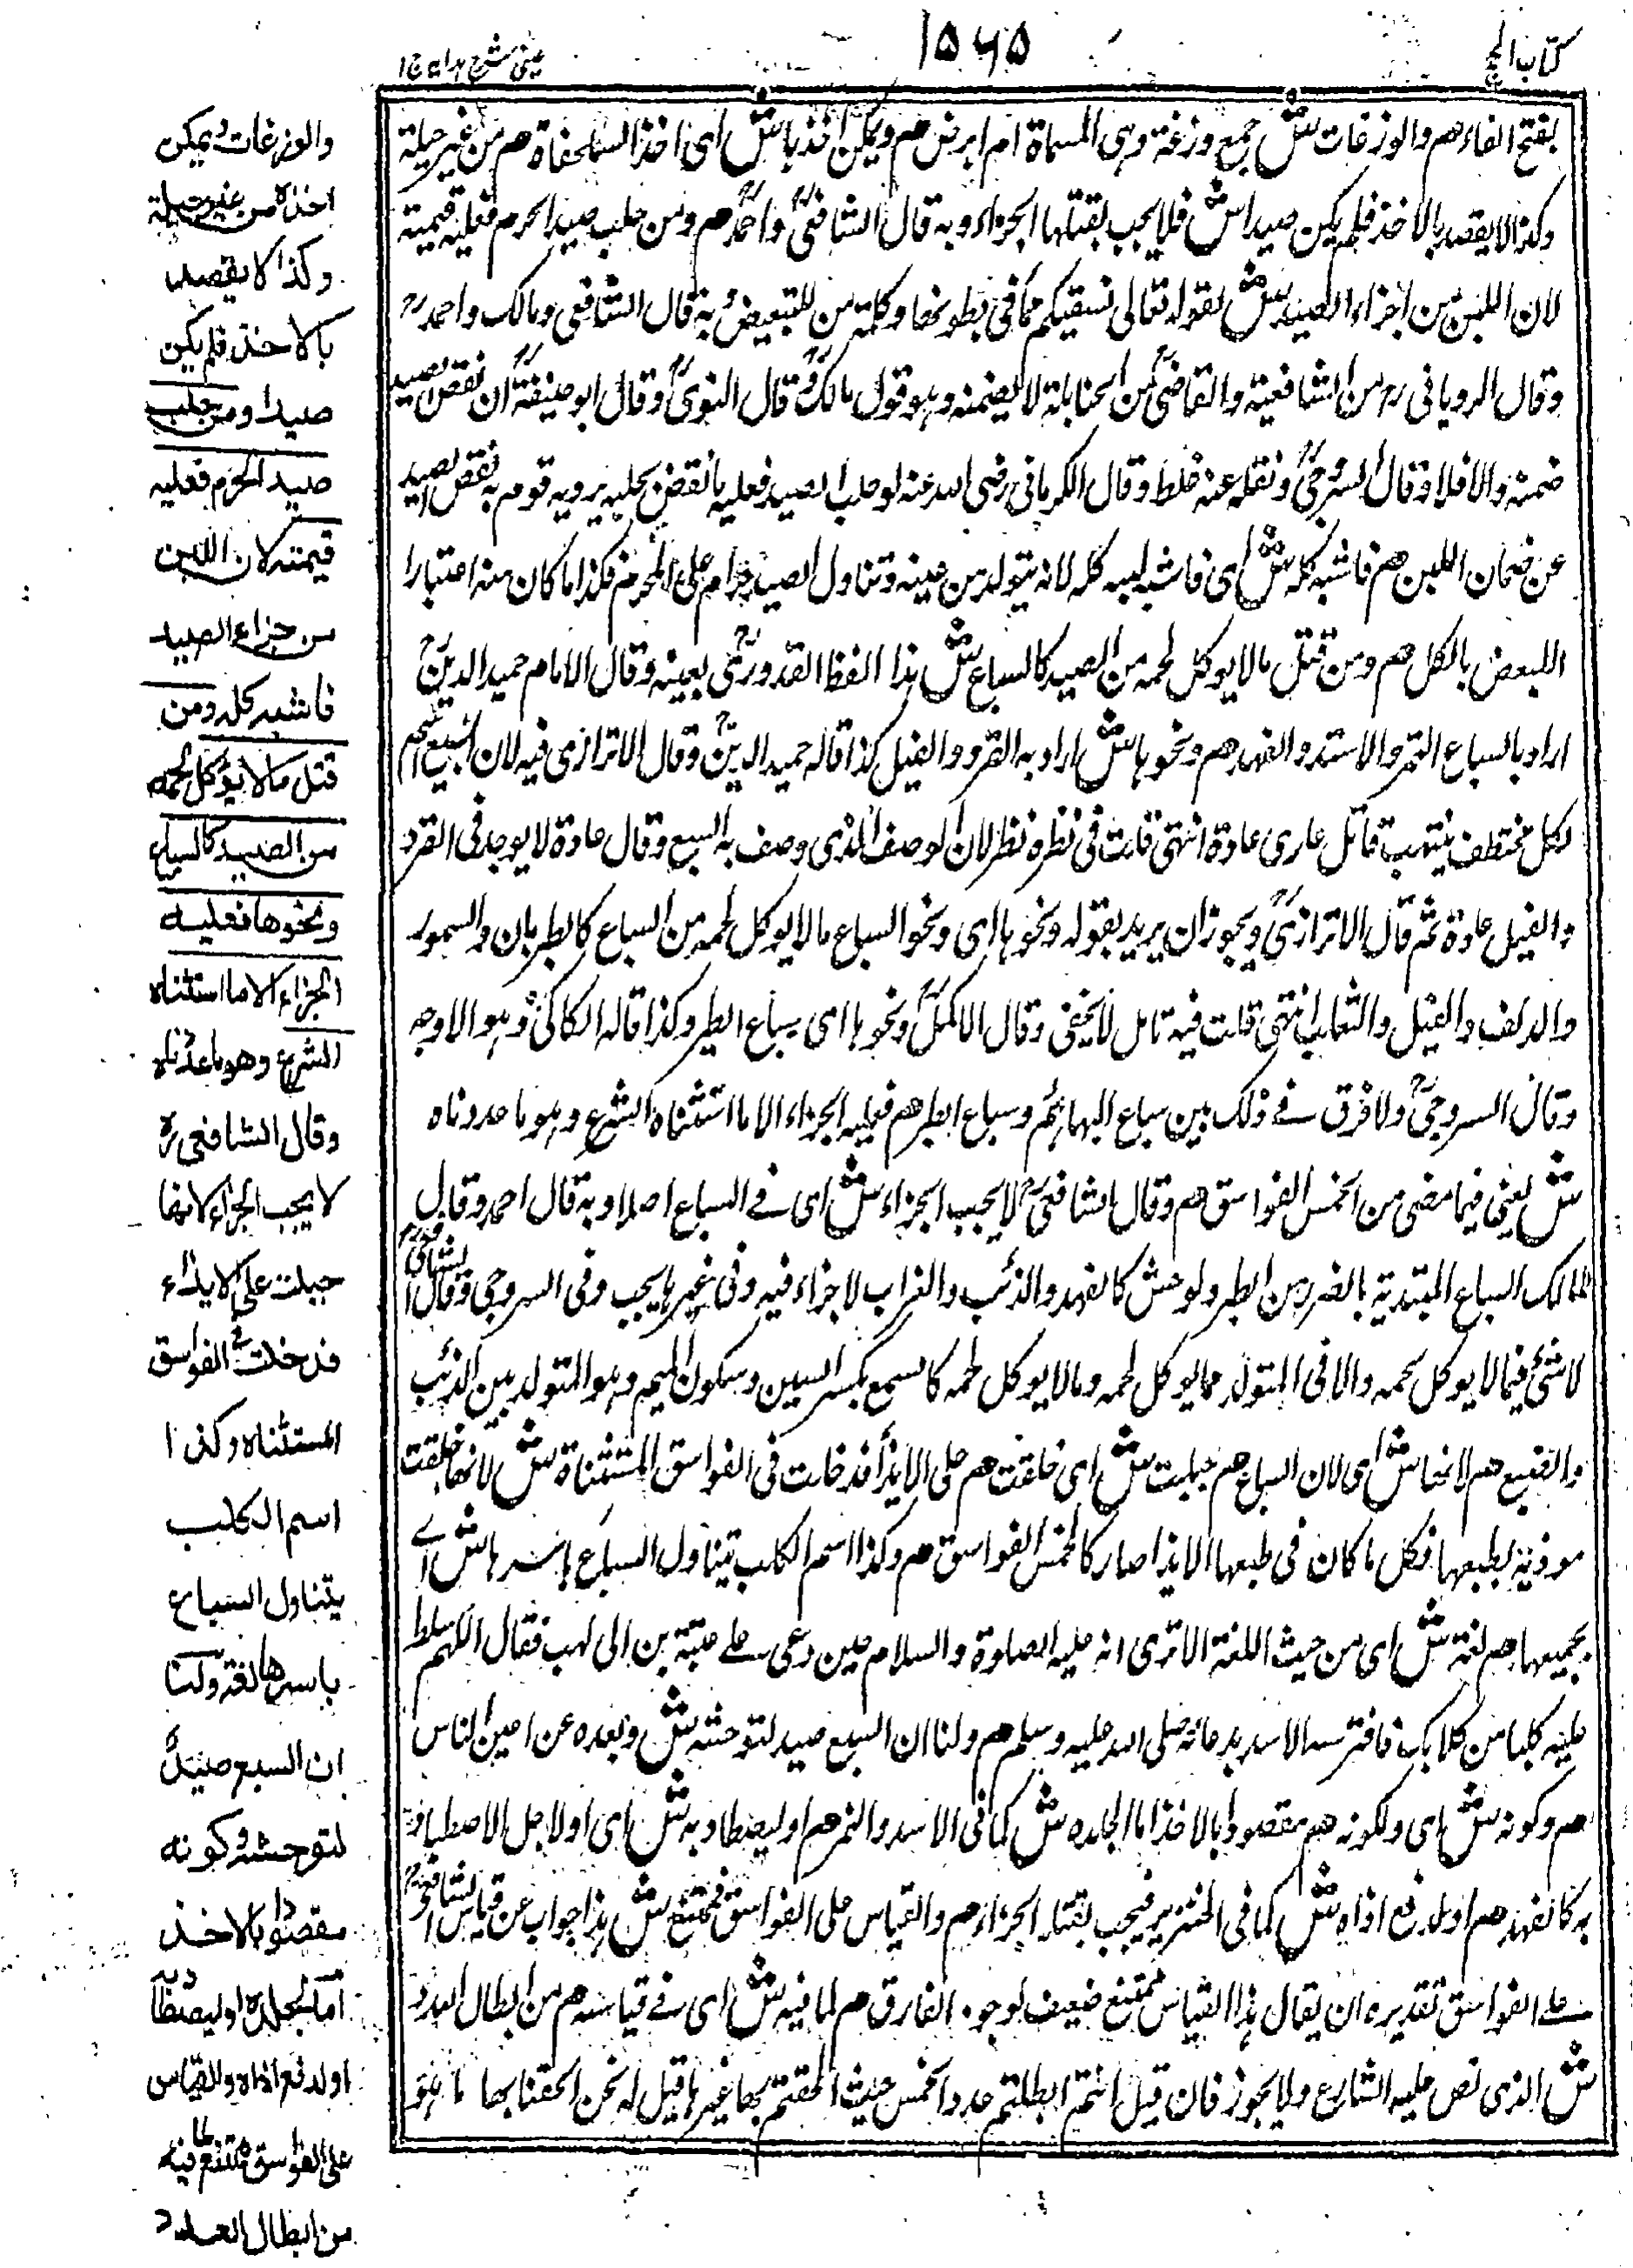 كتاب الحج
١٥٦٥
عینی شرح هدایه ج ١
بفتح الفاء هم والوزغات ش جمع وزغة وہی المسماة ام ابرص هم ویمکن اخذہا ش ای اخذ السلحفاة هم من غیر حیلة
وکذا لا یقصد بالاخذ فلم یکن صیدا ش فلا یجب بقتلہا الجزاء وبه قال الشافعیؒ واحمدؒ هم ومن حلب صید الحرم فعلیه قیمته
لان اللبن من اجزاء الصید ش لقوله تعالی نسقیکم مما فی بطونها وکلمة من للتبعیض وبه قال الشافعی ومالک واحمدؒ
وقال الرویانی رح من الشافعیة والقاضیؒ من الحنابلة لا یضمنه وہو قول مالکؒ وقال النویؒ وقال ابو حنیفةؒ ان نقص الصید
ضمنه والا فلا وقال السروجیؒ ونقله عنه غلط وقال الکرمانی رضی الله عنه لو حلب الصید فعلیه ما نقص بحلبه یرویه قوم به نقص الصید
عن ضمان اللبن هم فاشبه کله ش ای فاشبه لبنه کله لانه یتولد من عینه وتناول الصید حرام علی المحرم فکذا ما کان منه اعتبارا
اللبعض بالکل هم ومن قتل مالا یوکل لحمه من الصید کالسباع ش ہذا الفظ القدوریؒ بعینه وقال الامام حمید الدینؒ
اراد بالسباع النمر والاسد والفهد هم ونحوہا ش اراد به القرد والفیل کذا قاله حمید الدینؒ وقال الاترازی فیه لان السبع اسم
لکل مختطف منتہب قاتل عادی عادة انتهی قلت فی نظره نظر لان الوصف الذی وصف به السبع وقال عادة لا یوجد فی القرد
والفیل عادة ثم قال الاترازیؒ ویجوز ان یرید بقوله ونحوہا ای ونحو السباع مالا یوکل لحمه من السباع کالطربان والسمور
والدلف والفیل والثعالب انتهی قلت فیه تامل لا یخفی وقال الاکملؒ ونحوہا ای سباع الطیر وکذا قاله الکاکیؒ وہو الاوجه
وقال السروجیؒ ولا فرق فے ذلک بین سباع البهائم وسباع الطیر هم فعلیه الجزاء الا ما استثناه الشرع وہو ما عددناه
ش یعنی فیما مضی من الخمس الفواسق هم وقال الشافعیؒ لا یجب الجزاء ش ای فے السباع اصلا وبه قال احمد وقال
مالک السباع المبتدیة بالضرر من الطیر والوحش کالفهد والذئب والغراب لا جزاء فیه وفی غیرہا یجب وفی السروجی وقال الشافعیؒ
لا شئ فیما لا یوکل لحمه والا فی المتولد مما یوکل لحمه ومالا یوکل لحمه کالسمع بکسر السین وسکون المیم وہو المتولد بین الذئب
والضبع هم لانها ش ای لان السباع هم جبلت ش ای خلقت هم علی الایذاء فدخلت فی الفواسق المستثناة ش لانها خلقت
موذیة بطبعها فکل ما کان فی طبعها الایذا صار کالخمس الفواسق هم وکذا اسم الکلب یتناول السباع باسرہا ش اے
بجمیعها هم لغة ش ای من حیث اللغة الا تری انه علیه الصلوة والسلام حین دعی علے عتبة بن ابی لهب فقال اللهم سلط
علیه کلبا من کلابک فافترسه الاسد بدعائه صلی الله علیه وسلم هم ولنا ان السبع صید لتوحشه ش وبعده عن اعین الناس
هم وکونه ش ای ولکونه هم مقصودا بالاخذ اما لجلده ش کما فی الاسد والنمر هم او لیصطاد به ش ای او لاجل الاصطیاد
به کالفهد هم او لدفع اذاه ش کما فی الخنزیر فیجب بقتله الجزاء هم والقیاس علی الفواسق ممتنع ش ہذا جواب عن قیاس الشافعیؒ
علے الفواسق تقدیره ان یقال ہذا القیاس ممتنع ضعیف لوجود الفارق هم لما فیه ش ای فے قیاسه هم من ابطال العدد
ش الذی نص علیه الشارع ولا یجوز فان قیل انتم ابطلتم عدد الخمس حیث الحقتم بها غیرہا قیل له نحن الحقنا بها ما ہو
والوزغات ویمکن
اخذه من غیر حیلة
وکذا لا یقصد
بالاخذ فلم یکن
صیدا ومن حلب
صید الحرم فعلیه
قیمته لان اللبن
من اجزاء الصید
فاشبه کله ومن
قتل مالا یؤکل لحمه
من الصید کالسباع
ونحوها فعلیه
الجزاء الا ما استثناه
الشرع وهو ما عددناه
وقال الشافعی رح
لا یجب الجزاء لانها
جبلت علی الایذاء
فدخلت فی الفواسق
المستثناه وکذا
اسم الکلب
یتناول السباع
باسرها لغة ولنا
ان السبع صید
لتوحشه وکونه
مقصودا بالاخذ
اما لجلده او لیصطاد به
او لدفع اذاه والقیاس
علی الفواسق ممتنع لما فیه
من ابطال العدد